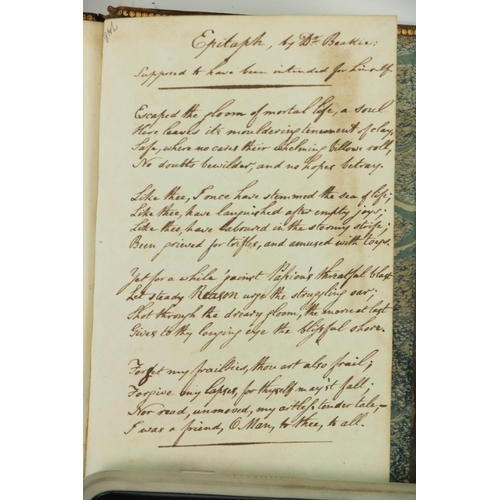 Epitaph, by Dr. Beattie;
Supposed to have been intended for himself.
Escaped the gloom of mortal life, a soul
Here leaves its mouldering tenement of clay,
Safe, where no cares their whelming billows roll,
No doubts bewilder, and no hopes betray.
Like thee, I once have stemmed the sea of life;
Like thee, have languished after empty joys;
Like thee, have labour'd in the stormy strife;
Been grieved for trifles, and amused with toys.
Yet for a while 'gainst Passion's threatful blast
Let steady Reason urge the struggling oar;
Shot through the dreary gloom, the morn at last
Gives to thy longing eye the blissful shore.
Forget my frailties, thou art also frail;
Forgive my lapses, for thyself may'st fall;
Nor read, unmoved, my artless tender tale,—
I was a friend, O Man, to thee, to all.